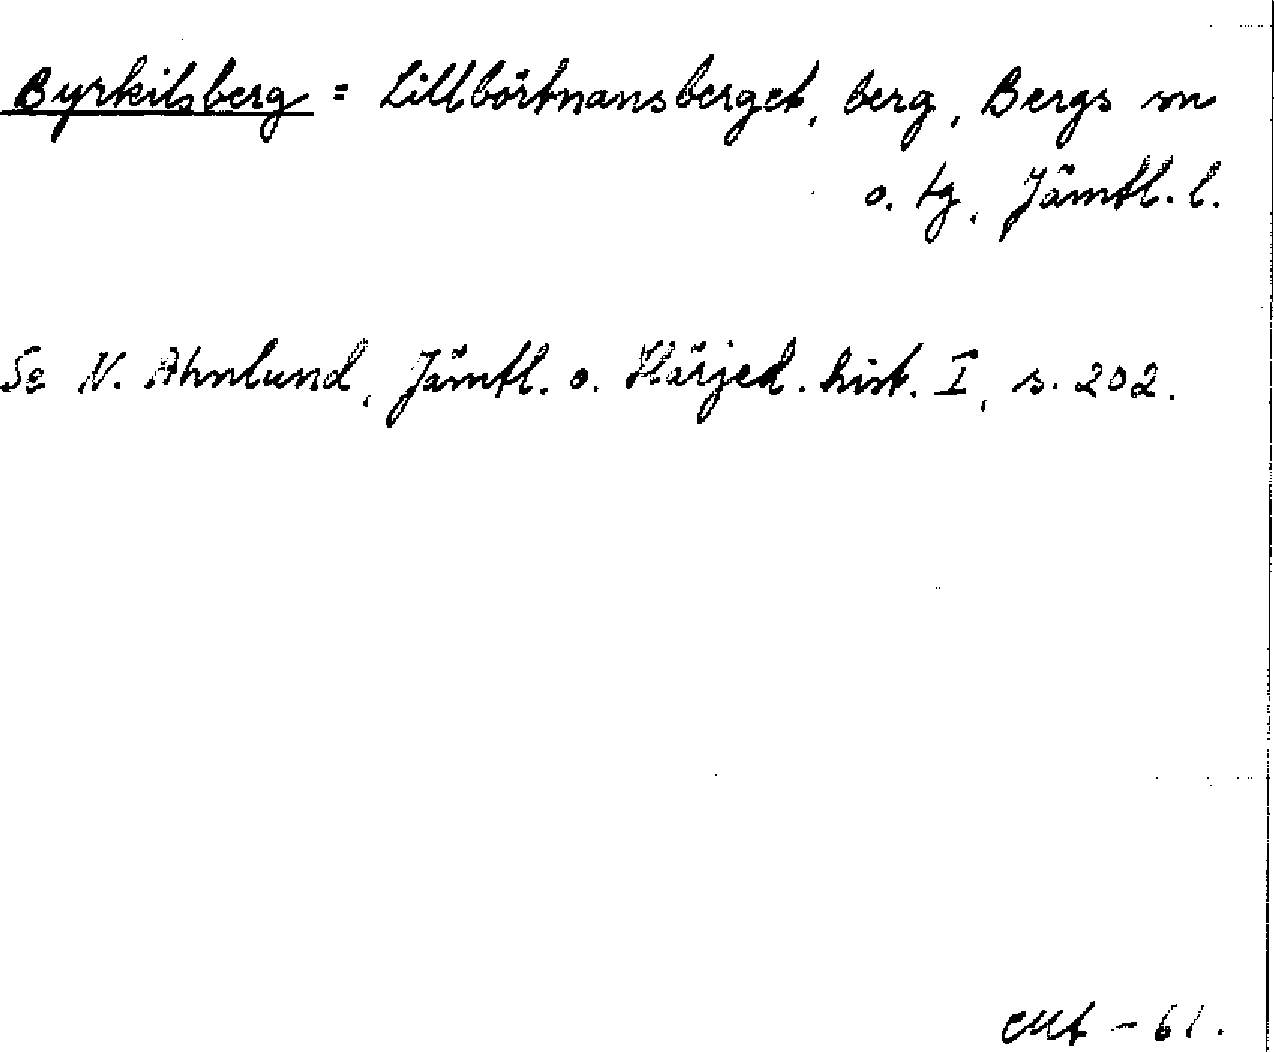 Byrkilsberg = Lillbörtnansberget, berg, Bergs sn
o. tg, Jämtl. l.
Se N. Ahnlund, Jämtl. o. Härjed. hist. I, s. 202.
- 61.